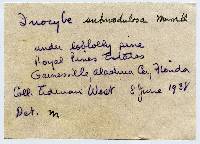 Inocybe submodulosa Murrill
under loblolly pine
Royal Pines Estates
Gainesville Alachua Co., Florida
Coll. Erdman West 8 June 1938
Det. M